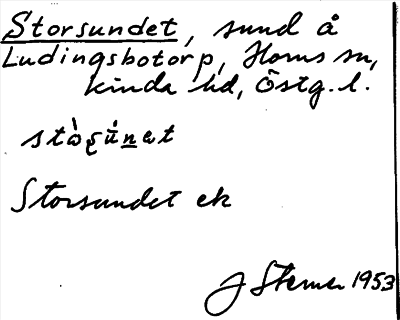 Storsundet, sund å
Ludingsbotorp, Horns sn,
Kinda hd, Östg. l.
Storsundet ek
J Sterner 1953